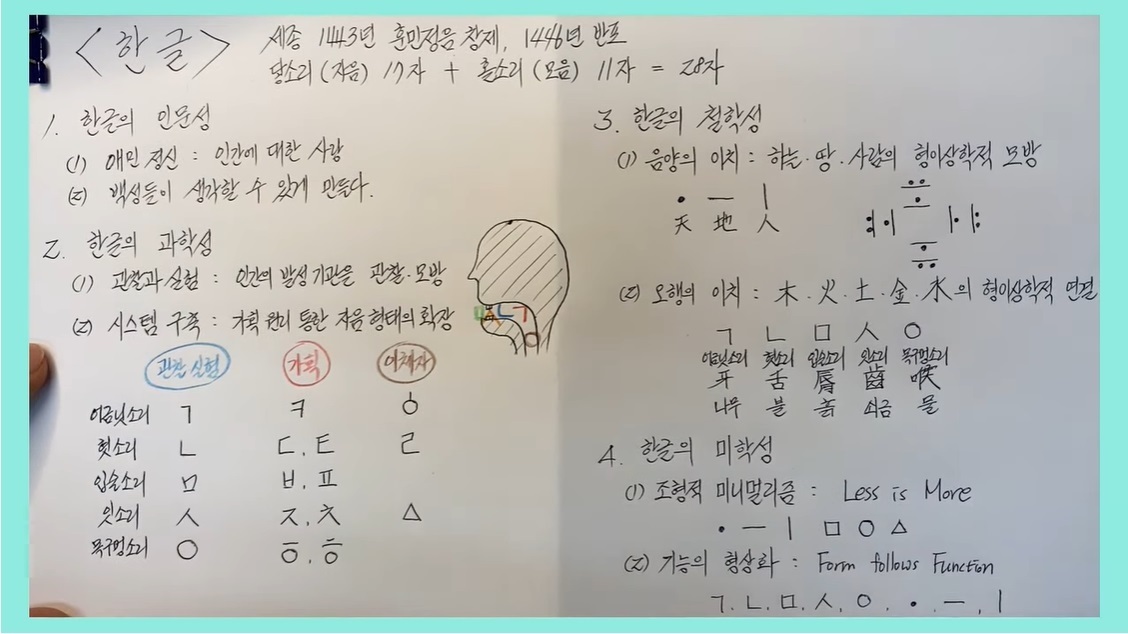 <한글>
세종 1443년 훈민정음 창제, 1446년 반포
닿소리(자음) 17자 + 홀소리(모음) 11자 = 28자
1. 한글의 인문성
(1) 애민 정신 : 인간에 대한 사랑
(2) 백성들이 생각할 수 있게 만들다.
2. 한글의 과학성
(1) 관찰과 실험 : 인간의 발성 기관을 관찰·모방
(2) 시스템 구축 : 가획 원리 통한 자음 형태의 확장
관찰 실험 가획 이체자
어금닛소리 ㄱ ㅋ ㆁ
혓소리 ㄴ ㄷ, ㅌ ㄹ
입술소리 ㅁ ㅂ, ㅍ
잇소리 ㅅ ㅈ, ㅊ ㅿ
목구멍소리 ㅇ ㆆ, ㅎ
3. 한글의 철학성
(1) 음양의 이치 : 하늘·땅·사람의 형이상학적 모방
• ㅡ ㅣ
天 地 人
(2) 오행의 이치 : 木·火·土·金·水의 형이상학적 연결
ㄱ ㄴ ㅁ ㅅ ㅇ
어금닛소리 혓소리 입술소리 잇소리 목구멍소리
牙 舌 脣 齒 喉
나무 불 흙 쇠금 물
4. 한글의 미학성
(1) 조형적 미니멀리즘 : Less is More
• ㅡ ㅣ □ ○ △
(2) 기능의 형상화 : Form follows Function
ㄱ, ㄴ, ㅁ, ㅅ, ㅇ, •, ㅡ, ㅣ